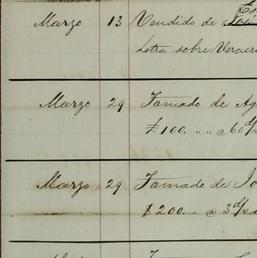 Marzo 13 Vendido de José
Letra sobre Veracru
Marzo 29 Tomado de Ag
£ 100. .. .. @ 60 d/v
Marzo 29 Tomado de Jo
$ 200. .. @ 3 d/v